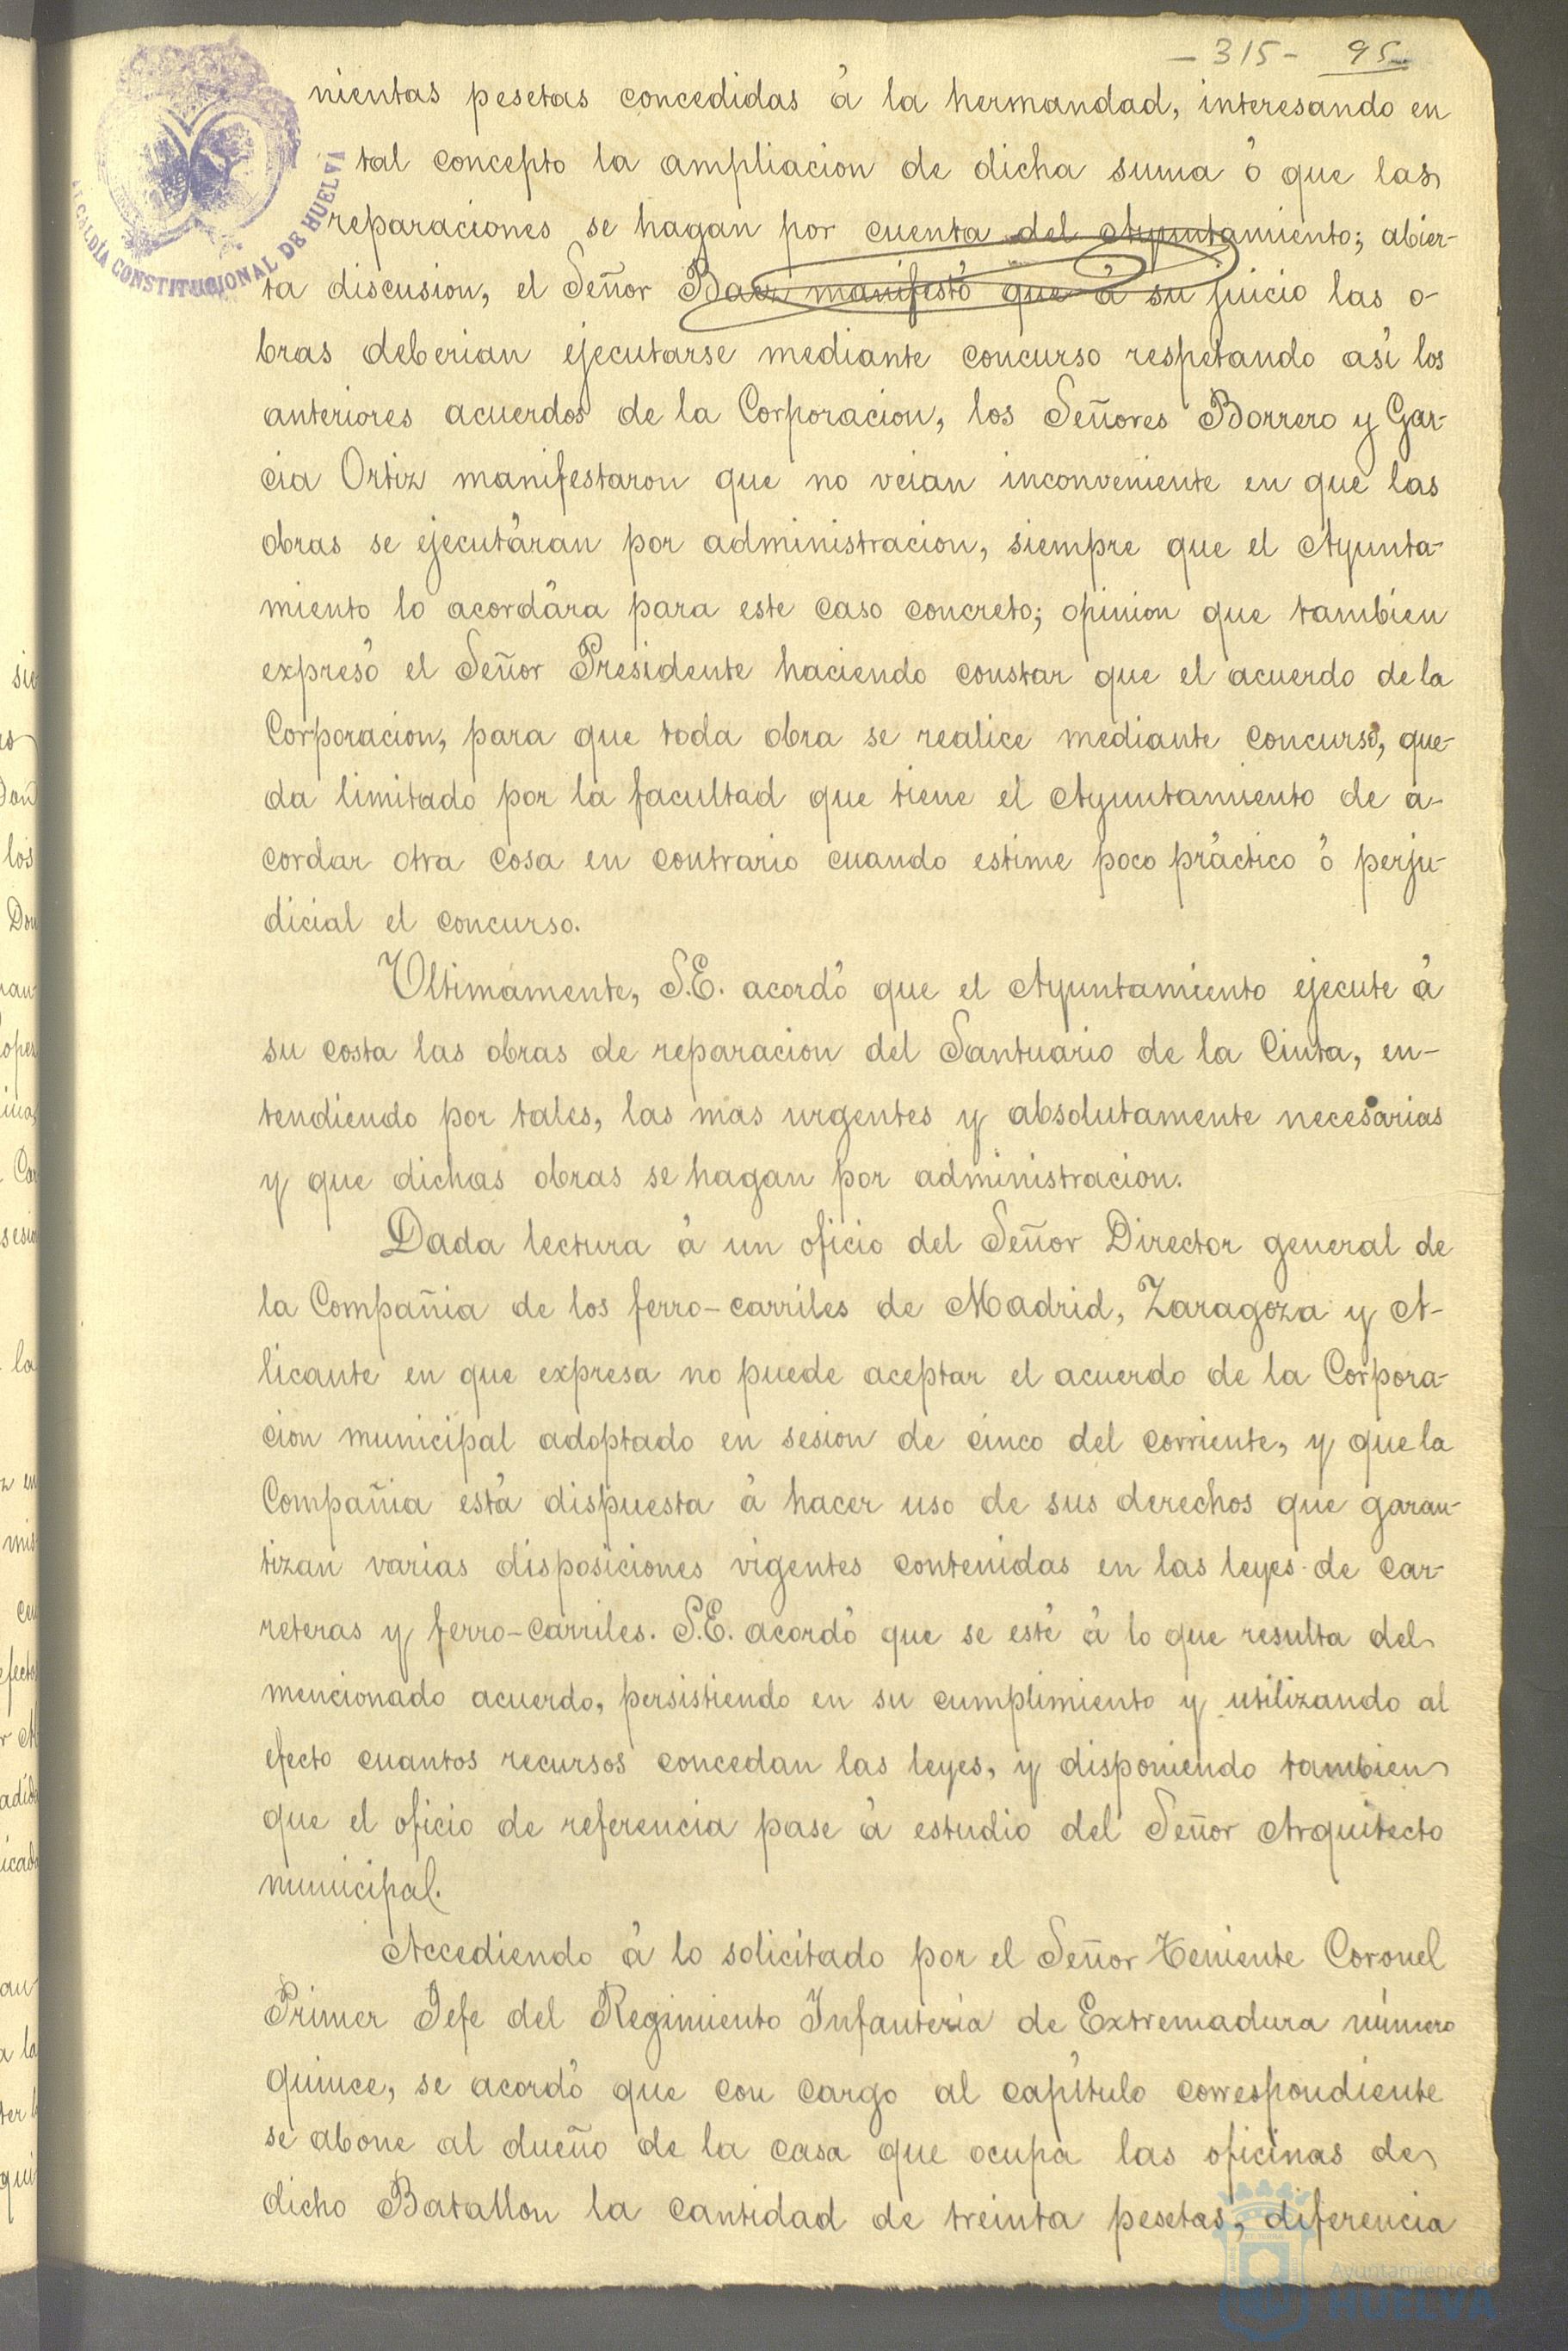 - 315 - 95
nientas pesetas concedidas á la hermandad, interesando en
tal concepto la ampliacion de dicha suma ó que las
reparaciones se hagan por cuenta del Ayuntamiento; abier-
ta discusion, el Señor Baez manifestó que á su juicio las o-
bras deberian ejecutarse mediante concurso respetando así los
anteriores acuerdos de la Corporacion, los Señores Borrero y Gar-
cia Ortiz manifestaron que no veian inconveniente en que las
obras se ejecutáran por administracion, siempre que el Ayunta-
miento lo acordára para este caso concreto; opinion que tambien
expresó el Señor Presidente haciendo constar que el acuerdo de la
Corporacion, para que toda obra se realice mediante concurso, que-
da limitado por la facultad que tiene el Ayuntamiento de a-
cordar otra cosa en contrario cuando estime poco práctico ó perju-
dicial el concurso.
Ultimamente, S.E. acordó que el Ayuntamiento ejecute á
su costa las obras de reparacion del Santuario de la Cinta, en-
tendiendo por tales, las mas urgentes y absolutamente necesarias
y que dichas obras se hagan por administracion.
Dada lectura á un oficio del Señor Director general de
la Compañia de los ferro-carriles de Madrid, Zaragoza y A-
licante en que expresa no puede aceptar el acuerdo de la Corpora-
cion municipal adoptado en sesion de cinco del corriente, y que la
Compañia está dispuesta á hacer uso de sus derechos que garan-
tizan varias disposiciones vigentes contenidas en las leyes de car-
reteras y ferro-carriles. S.E. acordó que se esté á lo que resulta del
mencionado acuerdo, persistiendo en su cumplimiento y utilizando al
efecto cuantos recursos concedan las leyes, y disponiendo tambien
que el oficio de referencia pase á estudio del Señor Arquitecto
municipal.
Accediendo á lo solicitado por el Señor Teniente Coronel
Primer Jefe del Regimiento Infantería de Extremadura número
quince, se acordó que con cargo al capítulo correspondiente
se abone al dueño de la casa que ocupa las oficinas de
dicho Batallon la cantidad de treinta pesetas, diferencia
ALCALDÍA CONSTITUCIONAL DE HUELVA
Ayuntamiento de
HUELVA